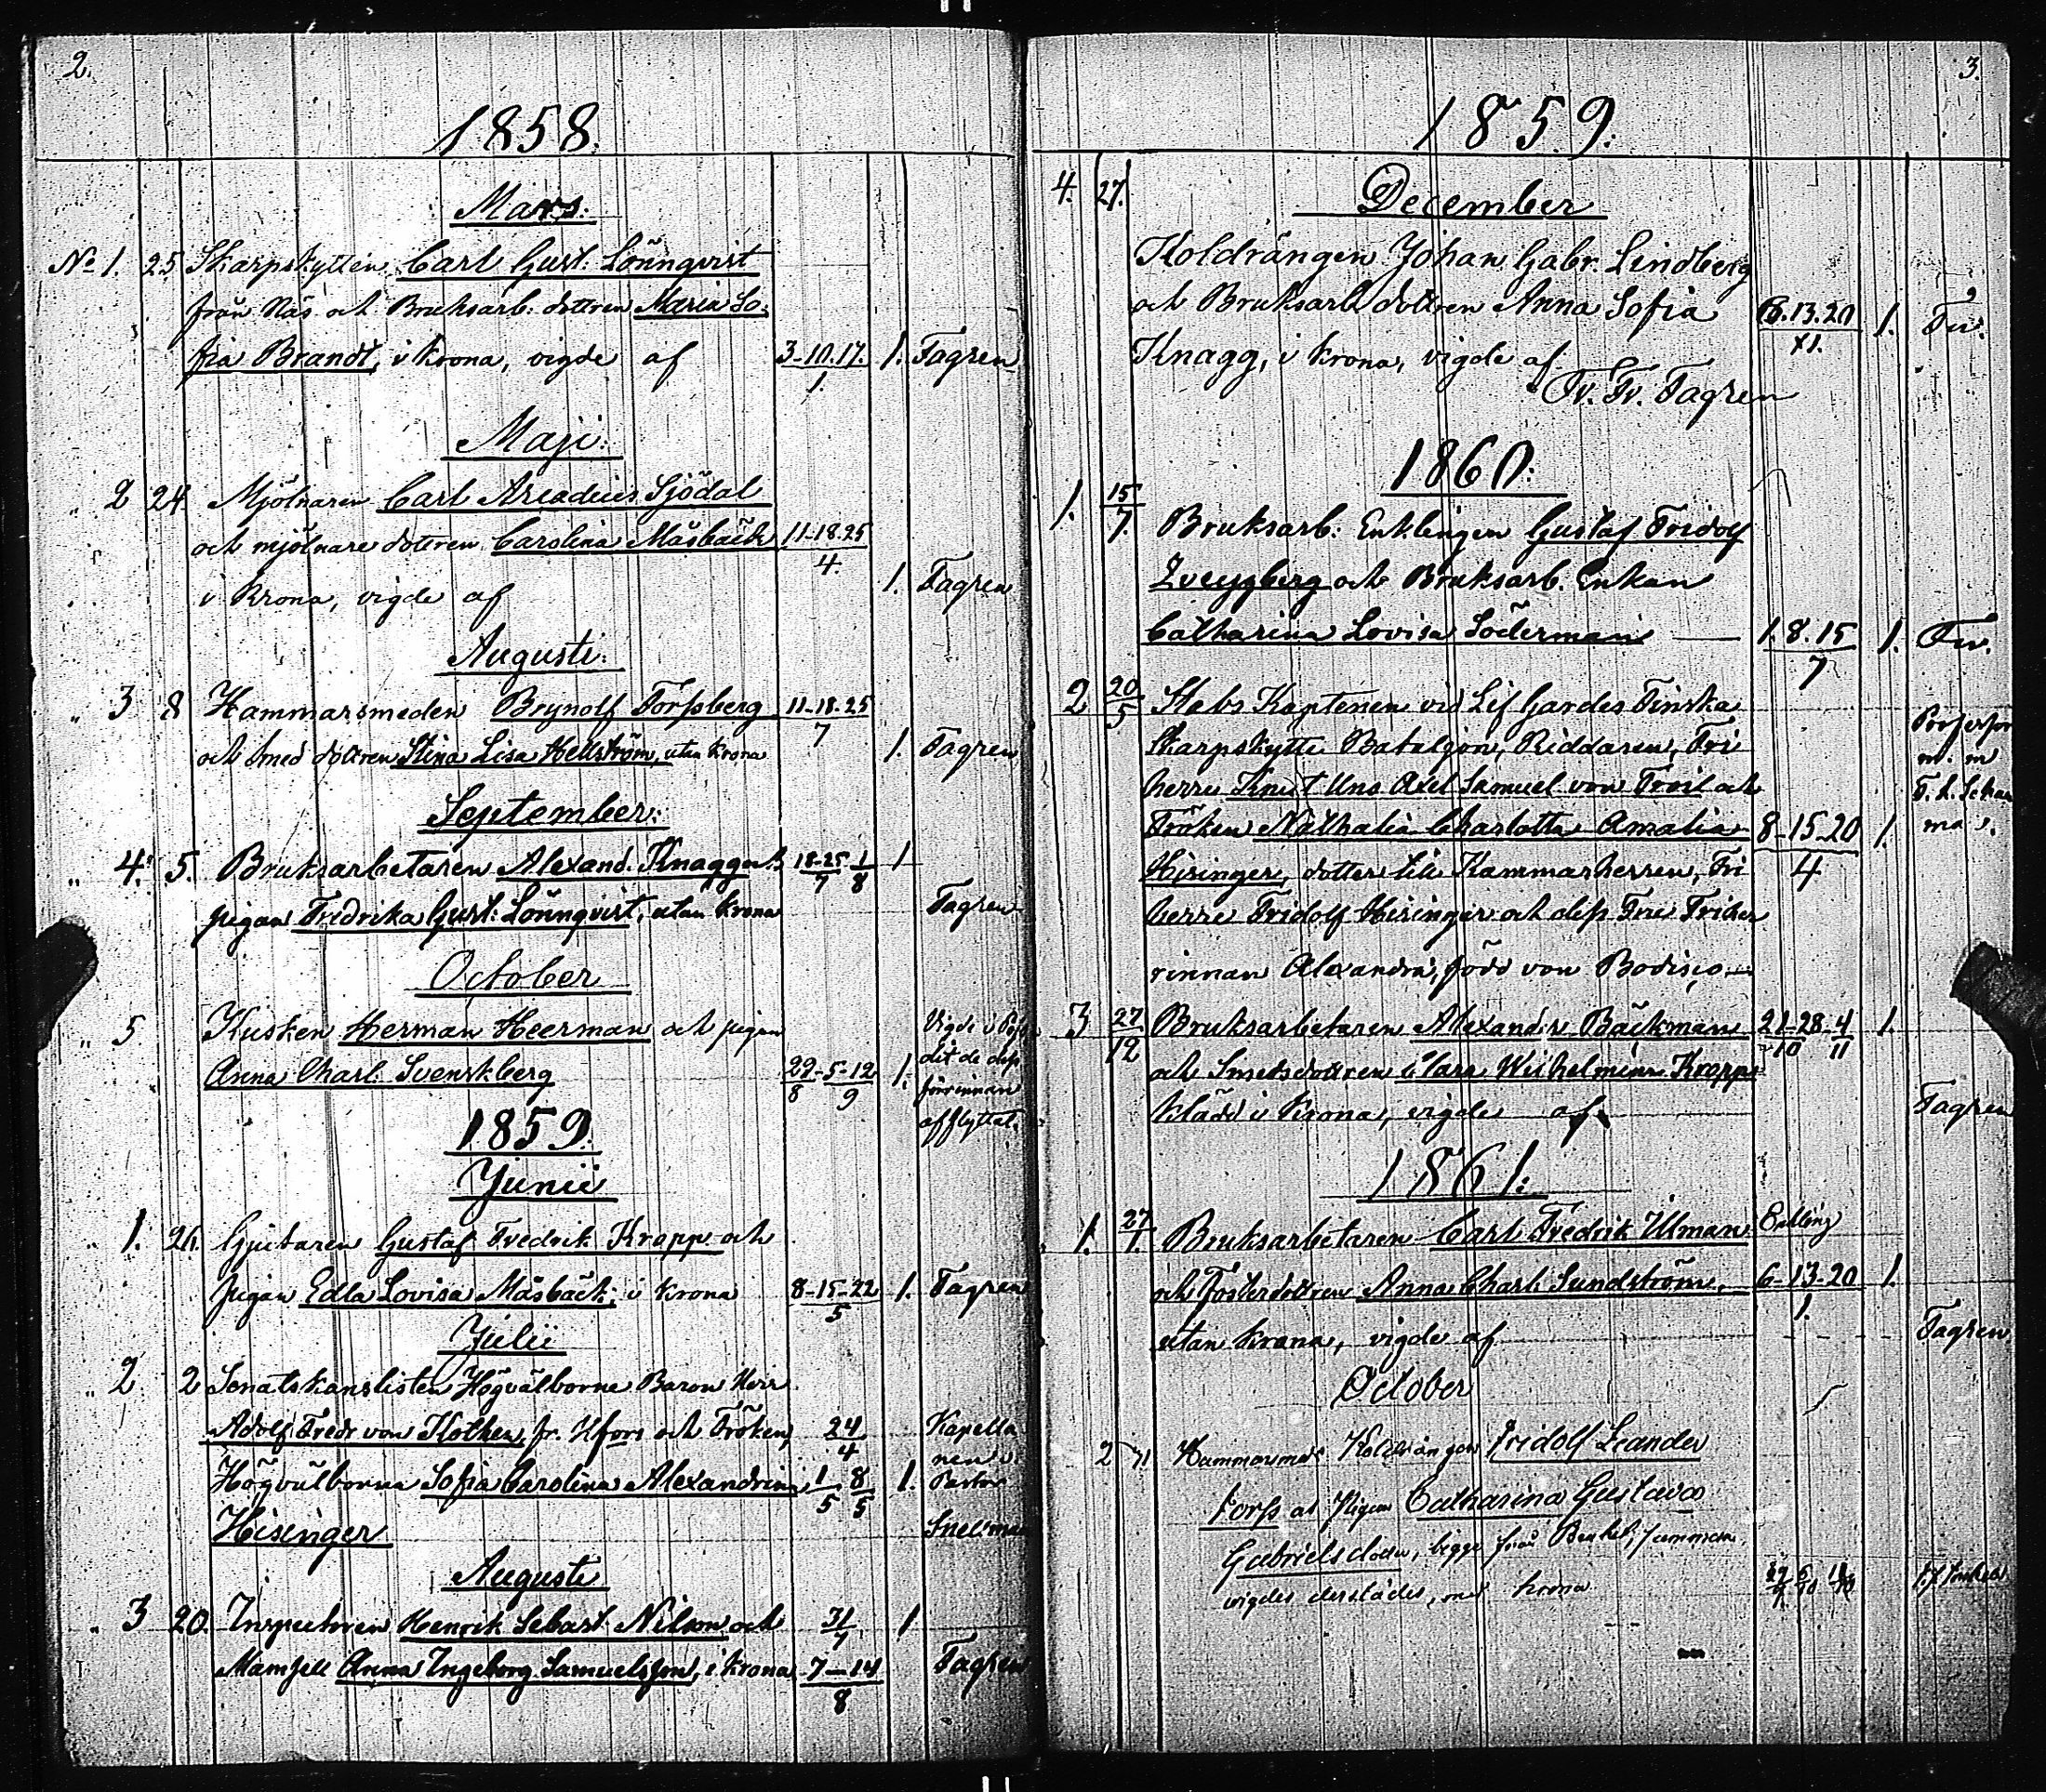 2.
1858.
Mars:
No 1. 25 Skarpskytten Carl Gust: Lönnqvist
från Näs och Bruksarb: dottren Maria So-
fia Brandt, i krona, vigde af 3-10.17. 1. Fagren
1.
Maji:
" 2 24. Mjölnaren Carl Arcadius Sjödal
och mjölnare dottren Carolina Måsbäck 11-18.25
4.
i Krona, vigde af 1. Fagren
Augusti:
" 3 8 Hammarsmeden Brynolf Forssberg 11-18-25
7
och Smed dottren Stina Lisa Hellström, utan krona 1. Fagren
September:
" 4. 5. Bruksarbetaren Alexand. Knagg och 18-25 1 1
7 8
pigan Fredrika Gust: Lönnqvist, utan krona Fagren
October
" 5 Kusken Herman Heerman och pigan Vigde i
dit de
Anna Charl: Svenskberg 29-5-12 1.
8 9 förrinnan
afflyttat.
1859.
Junii
" 1. 26. Gjutaren Gustaf Fredrik Krapp och
pigan Edla Lovisa Måsbäck; i krona 8-15-22 1. Fagren
5
Julii
" 2 2 Senatskanslisten Högvälborne Baron Herr
Adolf Fredr von Kothen, fr. Hfors och Fröken, 24 Kapella
4 nen o.
Högvälborna Sofia Carolina Alexandrina 1 8 1. Pastor
5 5
Hisinger Snelman
Augusti
" 3 20. Inspectoren Henrik Sebast. Nilson och 31 1
7
Mamsell Anna Ingeborg Samuelsson, i krona 7-14 Fagren
8
3.
1859.
4. 27. December
Koldrängen Johan Gabr. Lindberg
och Bruksarb dottren Anna Sofia 6.13.20 1. Fn.
Knagg, i krona, vigde af XI.
Fr. Fv. Fagren
1860.
1. 15 Bruksarb: Enklingen Gustaf Fridolf
7.
Zveygberg och Bruksarb. Enkan
Catharina Lovisa Söderman 1.8.15 1. Fn.
7
2 20 Stabs Kaptenen vid Lif Gardes Finska
5
Skarpskytte Bataljon, Riddaren, Fri Professor
m. m
herre Knut Uno Axel Samuel von Troil och F. L. Schau
Fröken Nathalia Charlotta Amalia 8-15-20 1. man.
Hisinger, dotter till Kammarherren, Fri 4
herre Fridolf Hisinger och dess Fru Friher
rinnan Alexandra, född von Bodisco
3 27 Bruksarbetaren Alexander Bäckman 21-28-4 1.
12 10 11
och Smedsdottren Clara Wilhelmina Krapp
klädd i krona, vigde af Fagren
1861.
1. 27 Bruksarbetaren Carl Fredrik Ulman Enkling
1.
och Fosterdottren Anna Charl. Sundström, 6-13-20 1.
1.
utan krona, vigde af Fagren
October
2 Hammarsmeds Koldrängen Fridolf Leander
Forss och Pigan Catharina Gustava
Gabrielsdotter, bägge från
vigdes derstädes, med krona